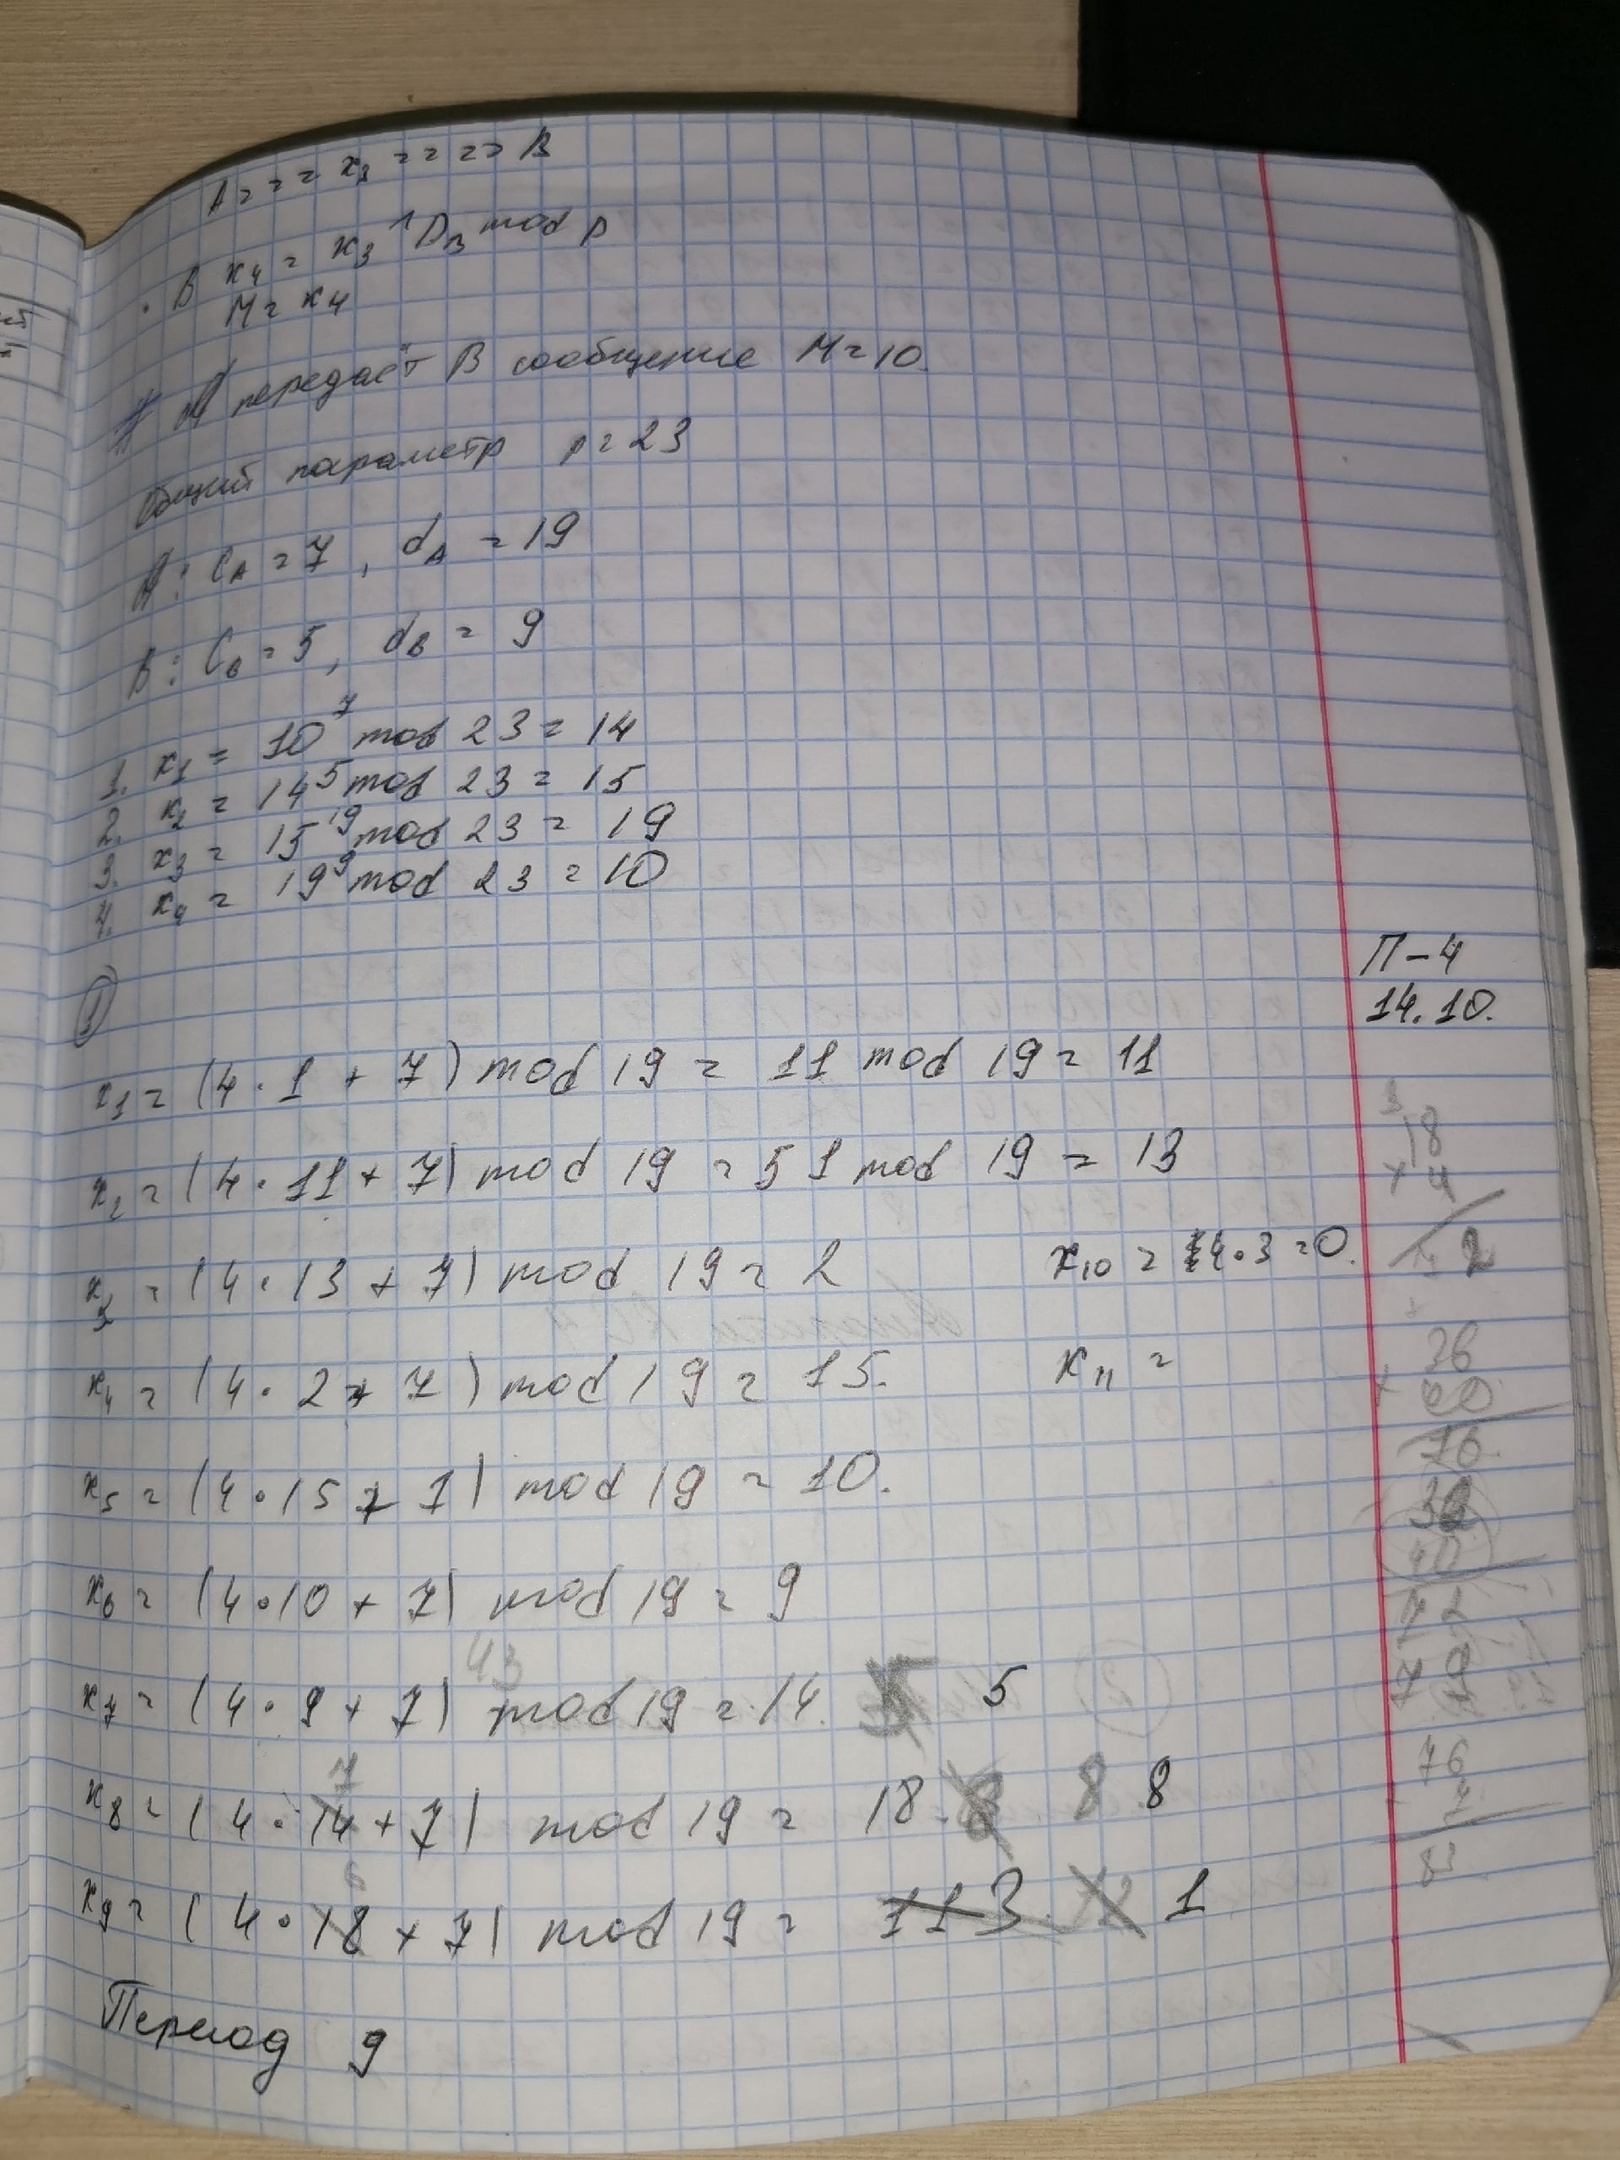 A = = = x3 = = = => B
· B x4 = x3 ^ DB mod p
M = x4
# A передаёт B сообщение M = 10.
Общий параметр p = 23
A: CA = 7, dA = 19
B: CB = 5, dB = 9
1. x1 = 10^7 mod 23 = 14
2. x2 = 14^5 mod 23 = 15
3. x3 = 15^19 mod 23 = 19
4. x4 = 19^9 mod 23 = 10
П-4
14.10.
1
x1 = (4·1 + 7) mod 19 = 11 mod 19 = 11
x2 = (4·11 + 7) mod 19 = 51 mod 19 = 13
x3 = (4·13 + 7) mod 19 = 2
x10 = 14·3 = 0.
x4 = (4·2 + 7) mod 19 = 15.
x11 =
x5 = (4·15 + 7) mod 19 = 10.
x6 = (4·10 + 7) mod 19 = 9
43
x7 = (4·9 + 7) mod 19 = 14. 5
7
x8 = (4·14 + 7) mod 19 = 18. 8 8 8
x9 = (4·18 + 7) mod 19 = 113. 12 1
Период 9
3
18
× 4
2
36
76